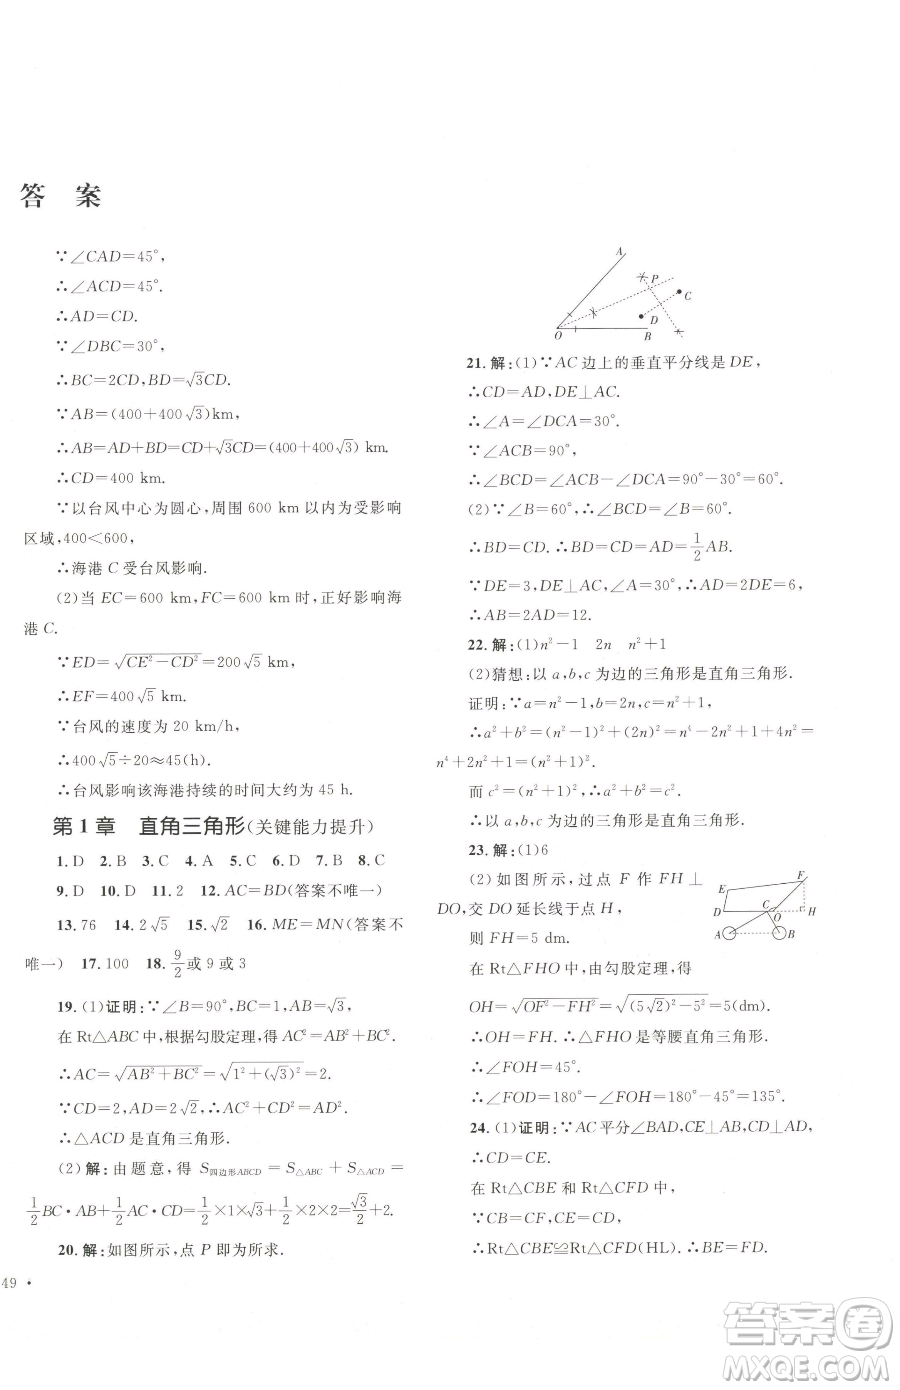 答 案
∵∠CAD=45°,
∴∠ACD=45°.
∴AD=CD.
∵∠DBC=30°,
∴BC=2CD,BD=√3CD.
∵AB=(400+400√3)km,
∴AB=AD+BD=CD+√3CD=(400+400√3)km.
∴CD=400 km.
∵以台风中心为圆心,周围 600 km 以内为受影响
区域,400<600,
∴海港 C 受台风影响.
(2)当 EC=600 km,FC=600 km 时,正好影响海
港 C.
∵ED=√(CE²-CD²)=200√5 km,
∴EF=400√5 km.
∵台风的速度为 20 km/h,
∴400√5÷20≈45(h).
∴台风影响该海港持续的时间大约为 45 h.
第 1 章 直角三角形(关键能力提升)
1. D 2. B 3. C 4. A 5. C 6. D 7. B 8. C
9. D 10. D 11. 2 12. AC=BD(答案不唯一)
13. 76 14. 2√5 15. √2 16. ME=MN(答案不
唯一) 17. 100 18. 9/2或 9 或 3
19. (1)证明:∵∠B=90°,BC=1,AB=√3,
在 Rt△ABC 中,根据勾股定理,得 AC²=AB²+BC².
∴AC=√(AB²+BC²)=√(1²+(√3)²)=2.
∵CD=2,AD=2√2,∴AC²+CD²=AD².
∴△ACD 是直角三角形.
(2)解:由题意,得 S四边形ABCD=S△ABC+S△ACD=
1/2BC·AB+1/2AC·CD=1/2×1×√3+1/2×2×2=√3/2+2.
20. 解:如图所示,点 P 即为所求.
49 •
A
P
C
D
O
B
21. 解:(1)∵AC 边上的垂直平分线是 DE,
∴CD=AD,DE⊥AC.
∴∠A=∠DCA=30°.
∵∠ACB=90°,
∴∠BCD=∠ACB-∠DCA=90°-30°=60°.
(2)∵∠B=60°,∴∠BCD=∠B=60°.
∴BD=CD.∴BD=CD=AD=1/2AB.
∵DE=3,DE⊥AC,∠A=30°,∴AD=2DE=6,
∴AB=2AD=12.
22. 解:(1)n²-1 2n n²+1
(2)猜想:以 a,b,c 为边的三角形是直角三角形.
证明:∵a=n²-1,b=2n,c=n²+1,
∴a²+b²=(n²-1)²+(2n)²=n⁴-2n²+1+4n²=
n⁴+2n²+1=(n²+1)².
而 c²=(n²+1)²,∴a²+b²=c².
∴以 a,b,c 为边的三角形是直角三角形.
23. 解:(1)6
(2)如图所示,过点 F 作 FH⊥
DO,交 DO 延长线于点 H,
则 FH=5 dm.
E
F
D
C
O
H
A
B
在 Rt△FHO 中,由勾股定理,得
OH=√(OF²-FH²)=√((5√2)²-5²)=5(dm).
∴OH=FH.∴△FHO 是等腰直角三角形.
∴∠FOH=45°.
∴∠FOD=180°-∠FOH=180°-45°=135°.
24. (1)证明:∵AC 平分∠BAD,CE⊥AB,CD⊥AD,
∴CD=CE.
在 Rt△CBE 和 Rt△CFD 中,
∵CB=CF,CE=CD,
∴Rt△CBE≌Rt△CFD(HL).∴BE=FD.
答案卷
MXQE.COM